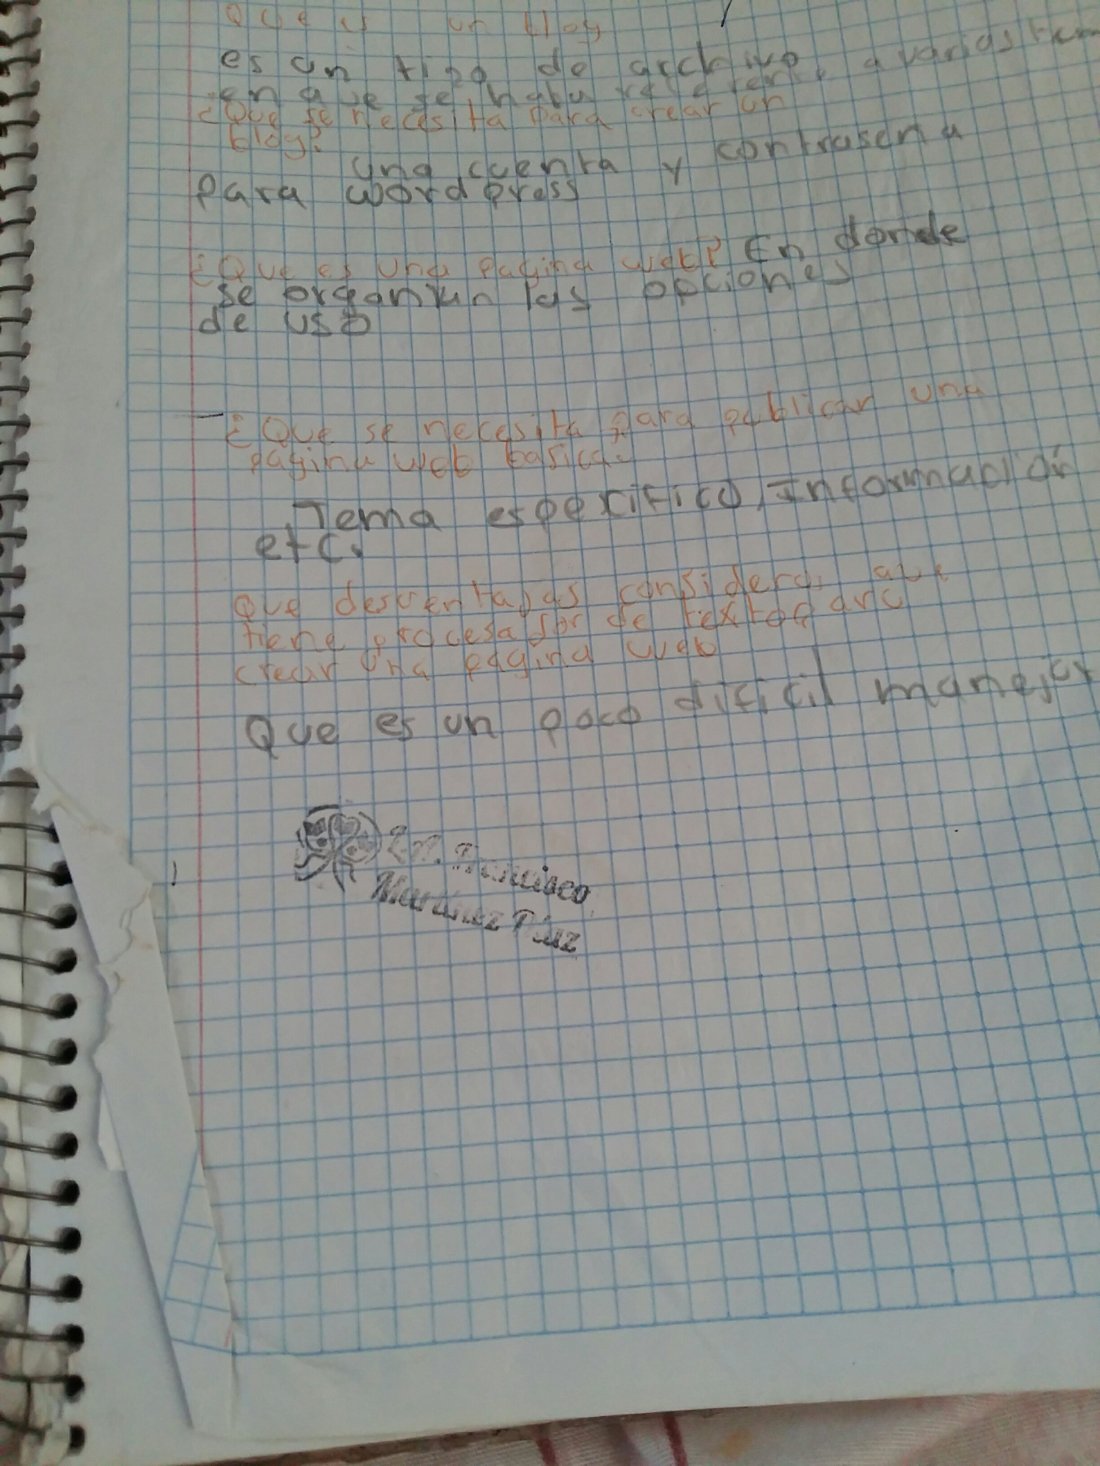 Que es un blog
es un tipo de archivo
en que se habla referente a varios tem
¿Que se necesita para crear un
blog?
una cuenta y contraseña
para wordpress
¿Que es una pagina web? En donde
se organizan las opciones
de uso
¿Que se necesita para publicar una
pagina web basica?
Tema especifico, Información
etc.
Que desventajas considera que
tiene procesador de textos para
crear una pagina web
Que es un poco dificil manejar
Francisco
Martínez Páez